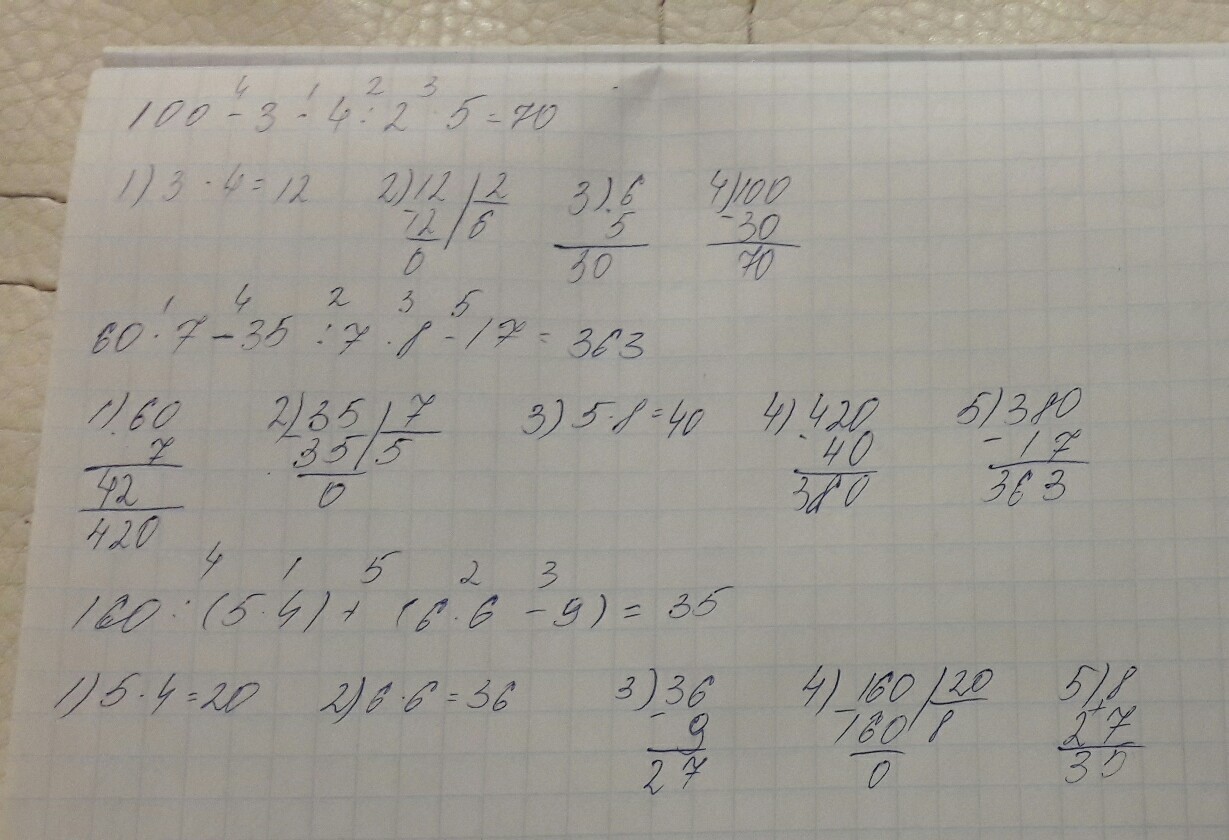 4 1 2 3
100 - 3 · 4 : 2 · 5 = 70
1) 3 · 4 = 12 2) 12 | 2 3) 6 4) 100
- 12 | 6 · 5 - 30
0 30 70
1 4 2 3 5
60 · 7 - 35 : 7 · 8 - 17 = 363
1) 60 2) 35 | 7 3) 5 · 8 = 40 4) 420 5) 380
· 7 - 35 | 5 - 40 - 17
42 0 380 363
420
4 1 5 2 3
160 : (5 · 4) + (6 · 6 - 9) = 35
1) 5 · 4 = 20 2) 6 · 6 = 36 3) 36 4) 160 | 20 5) 8
- 9 - 160 | 8 + 27
27 0 35